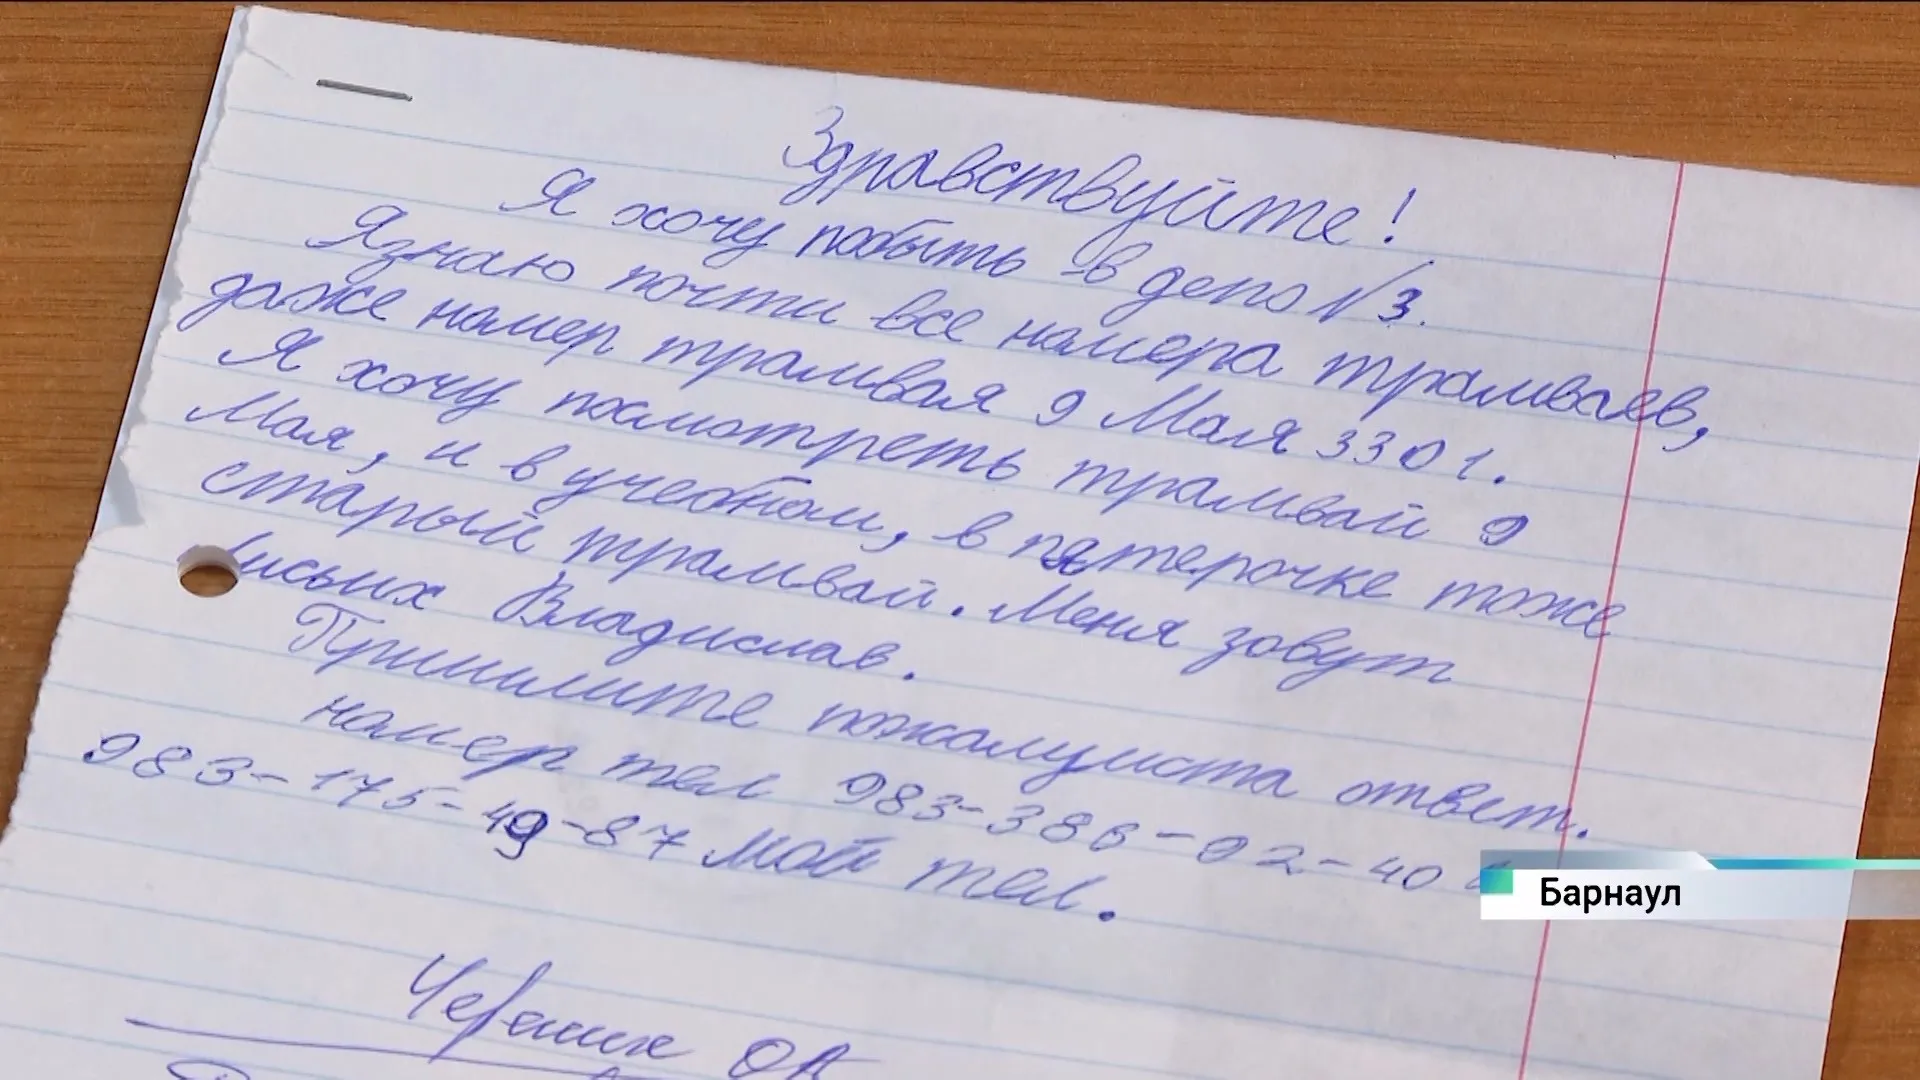 Здравствуйте!
Я хочу побыть в депо №3.
Я знаю почти все номера трамваев,
даже номер трамвая 9 Мая 3301.
Я хочу посмотреть трамвай 9
Мая, и в учебном, в пятерочке тоже
старый трамвай. Меня зовут
Лисьих Владислав.
Пришлите пожалуиста ответ.
номер тел 983-386-02-40
983-175-49-87 мой тел.
Барнаул
ОА